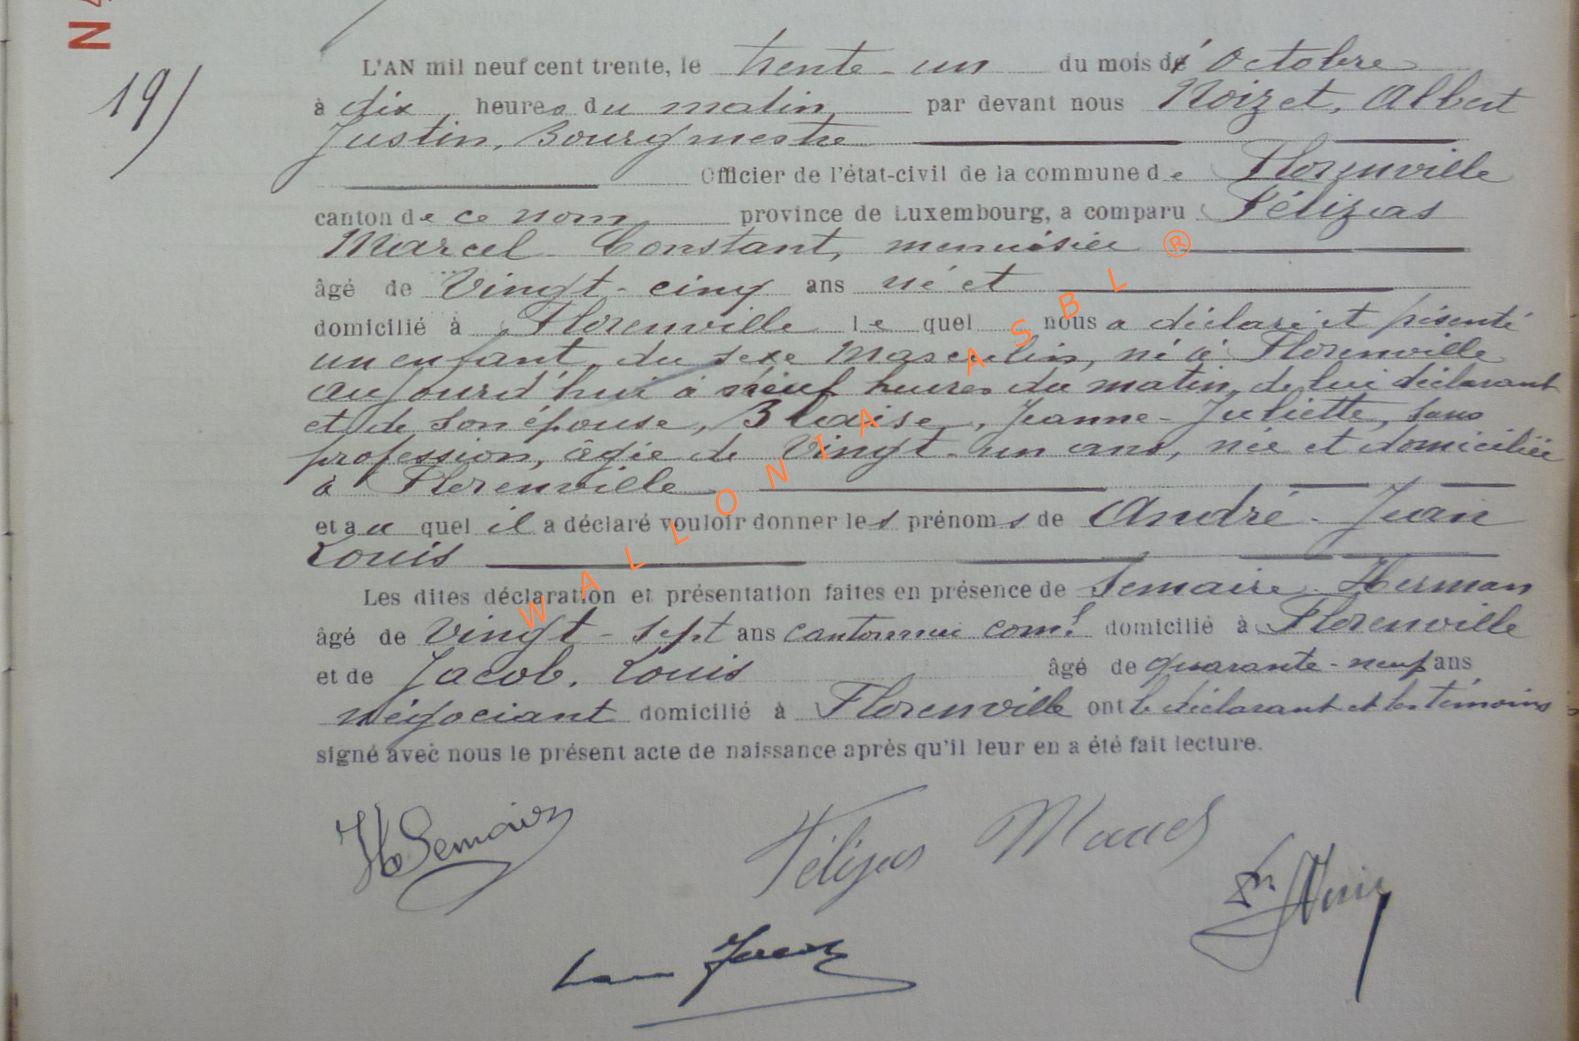 N
19/
L'AN mil neuf cent trente, le trente-un du mois d'Octobre
à dix heures du matin par devant nous Noizet, Albert
Justin, Bourgmestre
Officier de l'état-civil de la commune de Florenville
canton de ce nom province de Luxembourg, a comparu Félizas
Marcel Constant, menuisier ®
âgé de Vingt-cinq ans né et
domicilié à Florenville lequel nous a déclaré et présenté
un enfant du sexe Masculin, né à Florenville
aujourd'hui à neuf heures du matin, de lui déclarant
et de son épouse, Blaise, Jeanne-Juliette, sans
profession, âgée de Vingt-un ans, née et domiciliée
à Florenville
et auquel il a déclaré vouloir donner les prénoms de André-Jean
Louis
Les dites déclaration et présentation faites en présence de Semaire Herman
âgé de Vingt-sept ans cantonnier coml domicilié à Florenville
et de Jacob, Louis âgé de quarante-neuf ans
négociant domicilié à Florenville ont le déclarant et les témoins
signé avec nous le présent acte de naissance après qu'il leur en a été fait lecture.
H Semaire Félizas Marcel
Jacob
WALLONIA ASBL